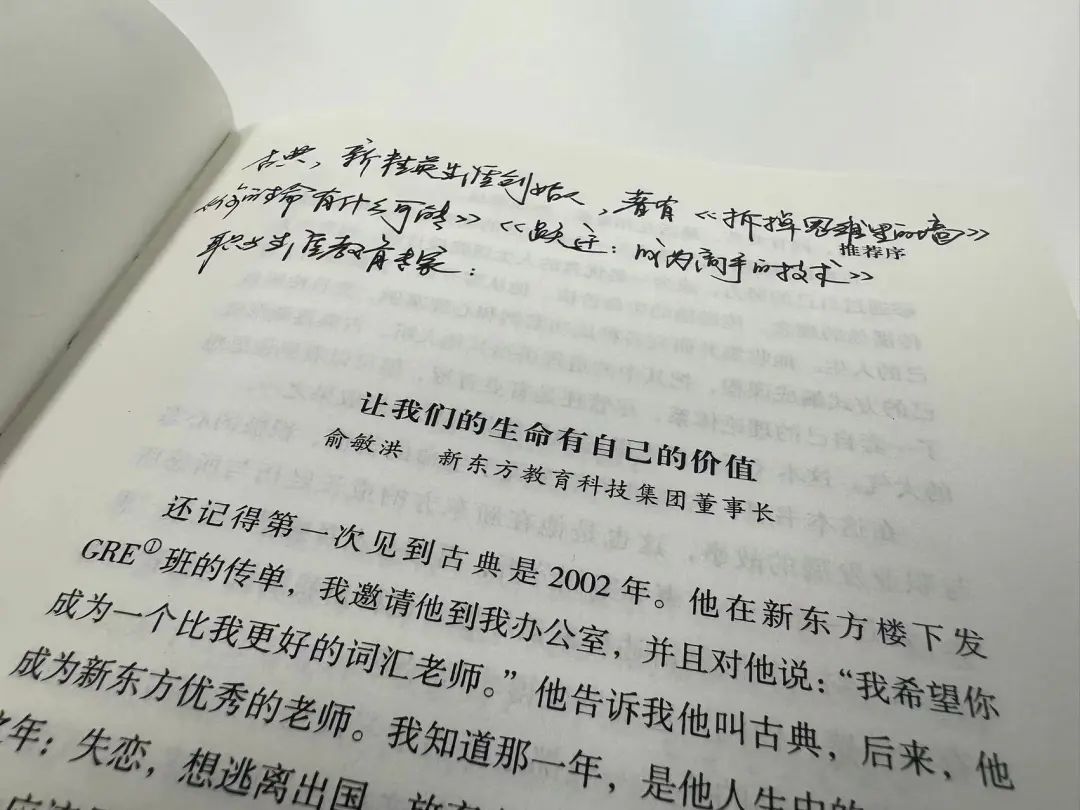 古典，新精英生涯创始人，著有《拆掉思维里的墙》
《你的生命有什么可能》《跃迁：成为高手的技术》
推荐序
职业生涯教育专家：
让我们的生命有自己的价值
俞敏洪 新东方教育科技集团董事长
还记得第一次见到古典是2002年。他在新东方楼下发
GRE①班的传单，我邀请他到我办公室，并且对他说：“我希望你
成为一个比我更好的词汇老师。”他告诉我他叫古典，后来，他
成为新东方优秀的老师。我知道那一年，是他人生中的
年：失恋，想逃离出国，放弃